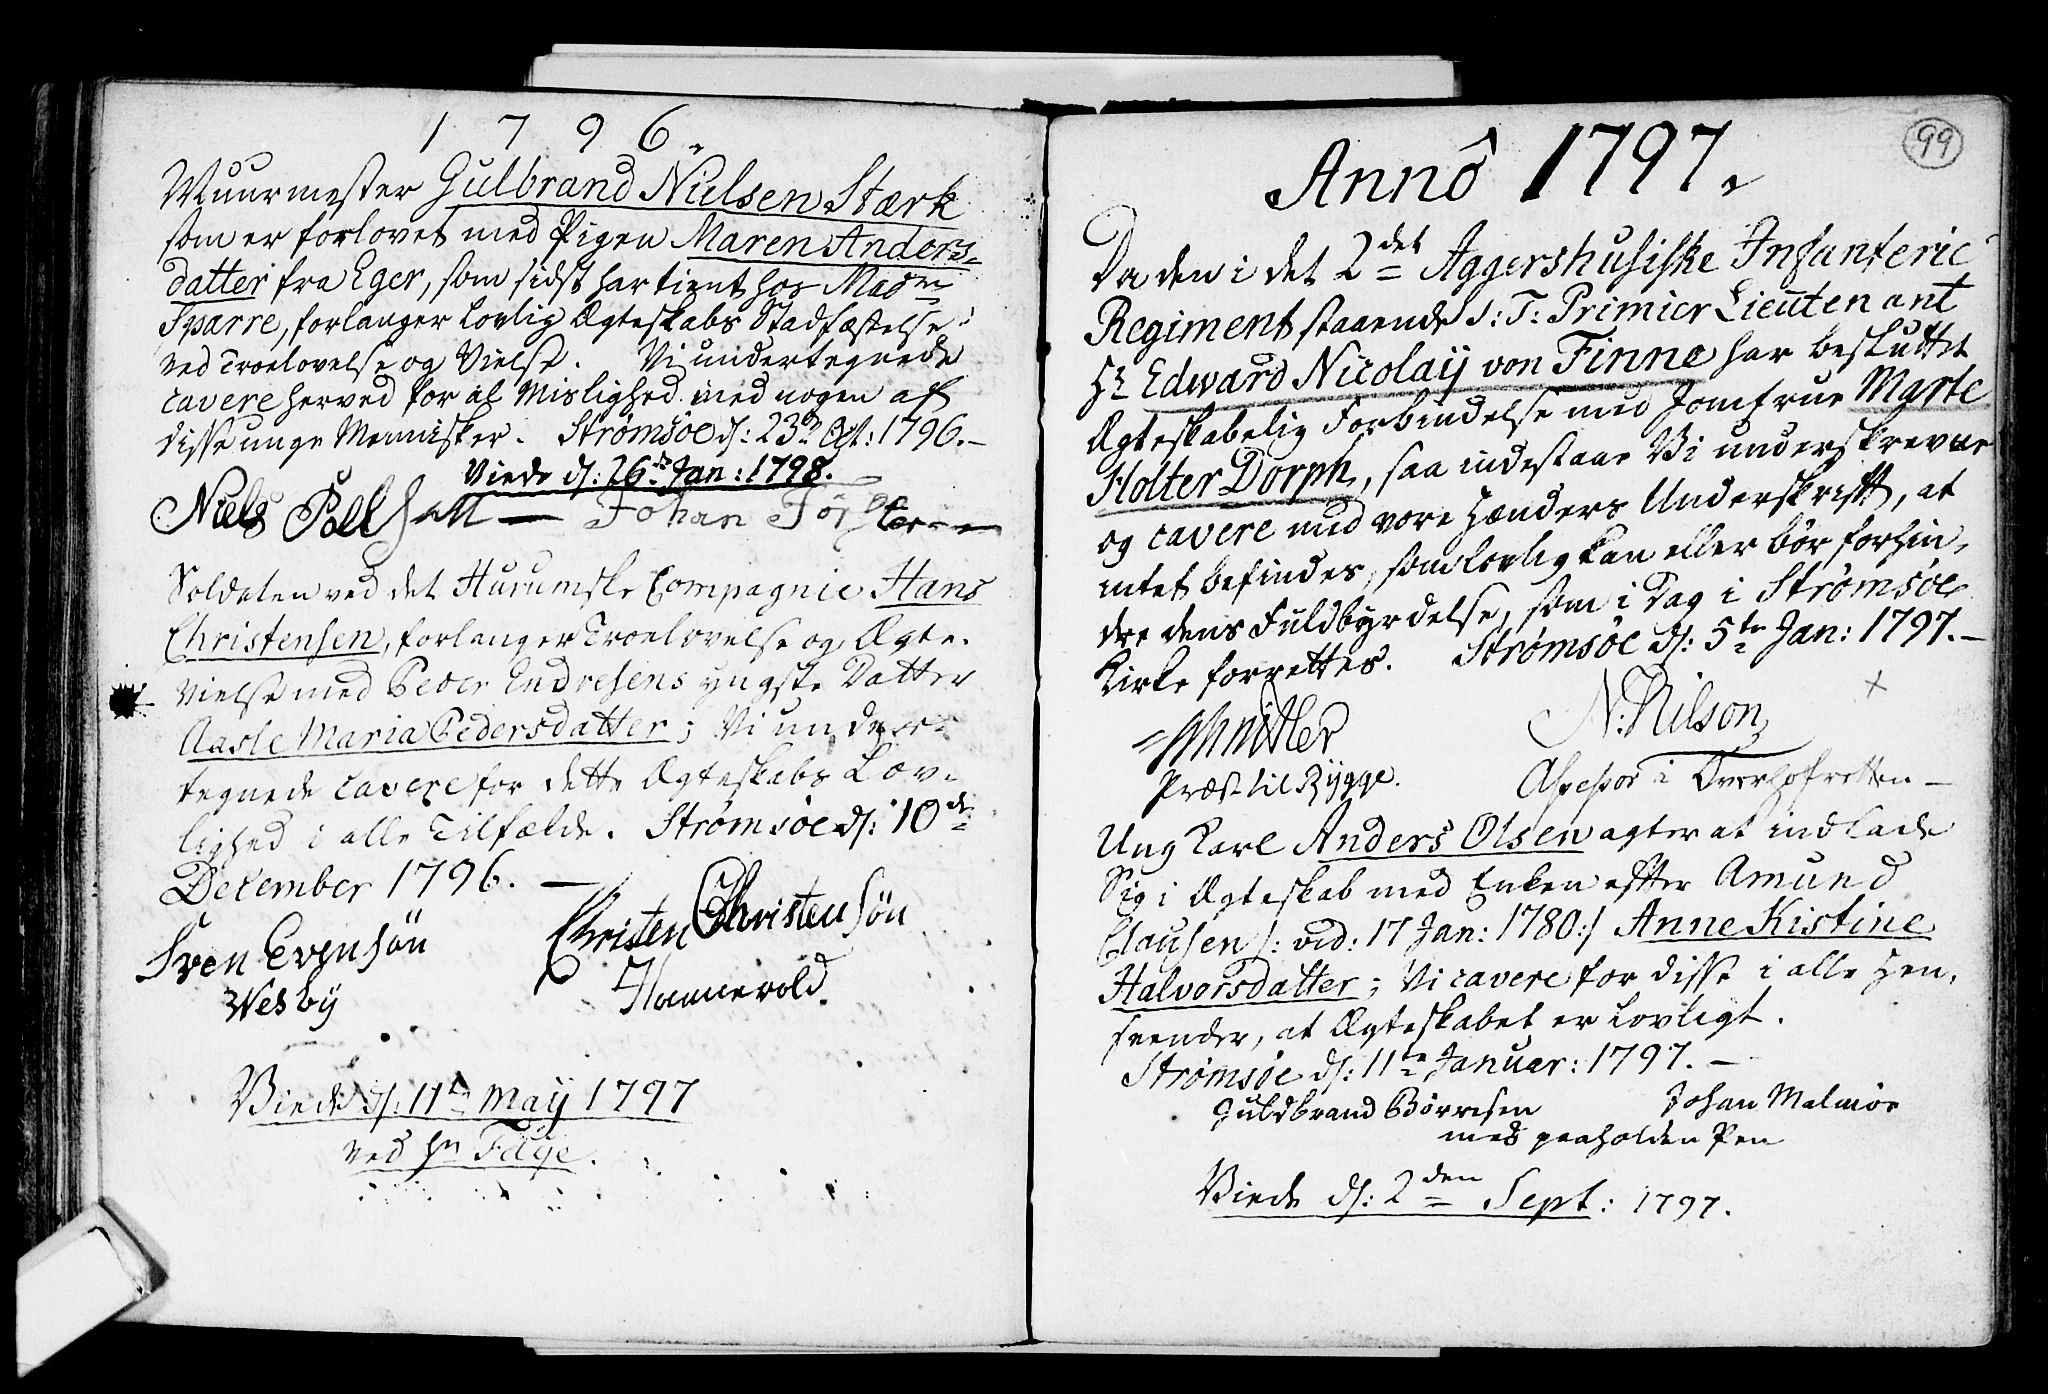 1796.
Muurmester Gulbrand Nielsen Stærk
som er forlovet med Pigen Maren Anders-
datter fra Eger, som sidst har tient hos Madm
Sparre, forlanger lovlig Ægteskabs Stadfæstelse
ved Troelovelse og Vielse. Vi undertegnede
cavere herved for al Mislighed med nogen af
disse unge Mennisker. Strømsöe d: 23d Oct: 1796.-
Viede d: 26de Jan: 1798.
Niels Poll Johan
Soldaten ved det Hurumske Compagnie Hans
Christensen, forlanger Troelovelse og Ægte-
vielse med Peder Endresens yngste Datter
Aasle Maria Pedersdatter; Vi under-
tegnede cavere for dette Ægteskabs Lov-
lighed i alle Tilfælde. Strømsöe d: 10de
December 1796. -
Sven Evensön Christen Christensön
Wesby Hannevold.
Viede d: 11te May 1797
ved Hr Faye.
99
Annô 1797.
Da den i det 2det Aggershusiske Infanterie
Regiment staaende S: T: Primier Lieutenant
Hr Edward Nicolaij von Finne har besluttet
Ægteskabelig Forbindelse med Jomfrue Marte
Holter Dorph, saa indestaae Vi underskrevne
og cavere med vore Hænders Underskrift, at
intet befindes, som lovlig kan eller bör forhin-
dre dens Fuldbyrdelse, som i Dag i Strømsöe
Kirke forrettes. Strømsöe d: 5te Jan: 1797.-
Schnitler N: Nilson
Præst til Rygge. Assessor i Overhofretten -
Ung Karl Anders Olsen agter at indlade
Sig i Ægteskab med Enken efter Amund
Clausen /: vid: 17 Jan: 1780:/ Anne Kistine
Halvorsdatter; Vi cavere for disse i alle Hen-
seender, at Ægteskabet er lovligt.
Strømsöe d: 11te Januar: 1797. -
Guldbrand Börresen Johan Malmöe
med paaholden Pen
Viede d: 2den Sept: 1797.